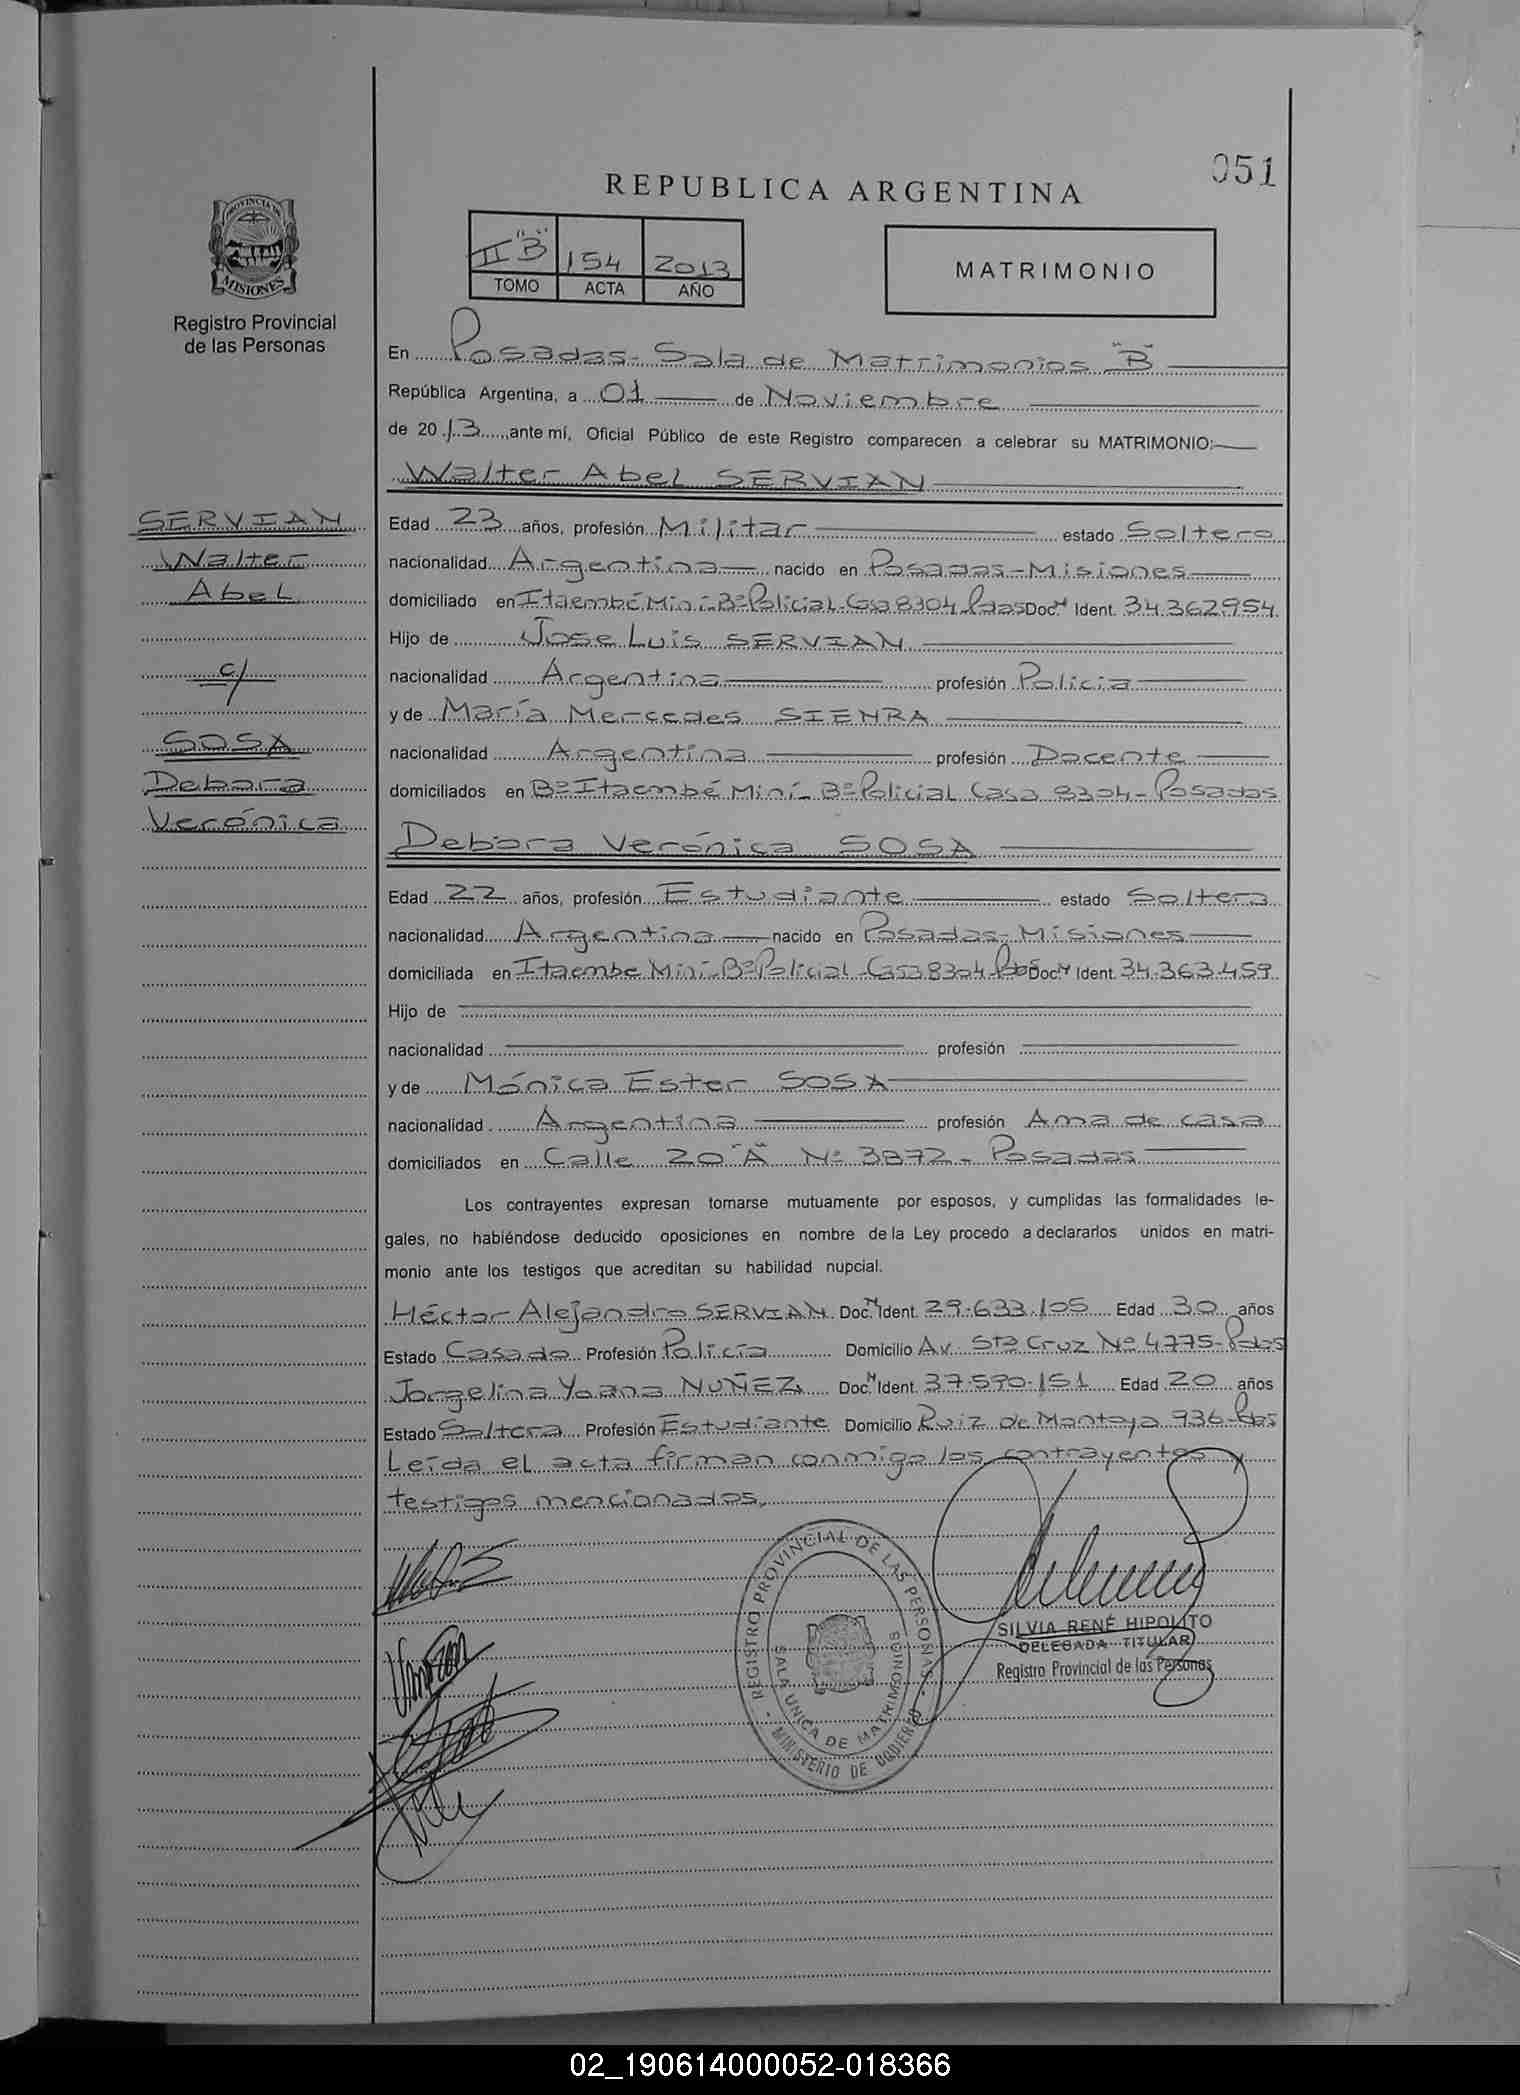 051
REPUBLICA ARGENTINA
PROVINCIA DE
MISIONES
Registro Provincial
de las Personas
II "B" 154 2013
TOMO ACTA AÑO
MATRIMONIO
En Posadas - Sala de Matrimonios "B"
República Argentina, a 01 de Noviembre
de 2013, ante mí, Oficial Público de este Registro comparecen a celebrar su MATRIMONIO:
Walter Abel SERVIAN
SERVIAN
Walter
Abel
c/
SOSA
Debora
Verónica
Edad 23 años, profesión Militar estado Soltero
nacionalidad Argentina nacido en Posadas - Misiones
domiciliado en Itaembé Miní - Bº Policial - Csa 8304 - Pdas Doc. N Ident. 34.362.954
Hijo de Jose Luis SERVIAN
nacionalidad Argentina profesión Policia
y de María Mercedes SIENRA
nacionalidad Argentina profesión Docente
domiciliados en Bº Itaembé Miní - Bº Policial Casa 8304 - Posadas
Debora Verónica SOSA
Edad 22 años, profesión Estudiante estado Soltera
nacionalidad Argentina nacido en Posadas - Misiones
domiciliada en Itaembe Miní - Bº Policial - Csa 8304 - Pdas Doc. N Ident. 34.363.459
Hijo de
nacionalidad profesión
y de Mónica Ester SOSA
nacionalidad Argentina profesión Ama de casa
domiciliados en Calle 20 "A" Nº 3872 - Posadas
Los contrayentes expresan tomarse mutuamente por esposos, y cumplidas las formalidades le-
gales, no habiéndose deducido oposiciones en nombre de la Ley procedo a declararlos unidos en matri-
monio ante los testigos que acreditan su habilidad nupcial.
Héctor Alejandro SERVIAN Doc. N Ident. 29.633.105 Edad 30 años
Estado Casado Profesión Policía Domicilio Av. Sta Cruz Nº 4775 - Pdas
Jorgelina Yoana NUÑEZ Doc. N Ident. 37.590.151 Edad 20 años
Estado Soltera Profesión Estudiante Domicilio Ruiz de Montoya 936 - Pdas
Leída el acta firman conmigo los contrayentes y
testigos mencionados.
REGISTRO PROVINCIAL DE LAS PERSONAS
SALA UNICA DE MATRIMONIOS
MINISTERIO DE GOBIERNO
SILVIA RENÉ HIPOLITO
DELEGADA TITULAR
Registro Provincial de las Personas
02_190614000052-018366